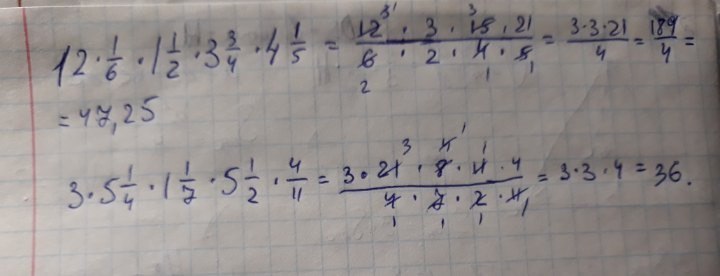 12 · 1/6 · 1 1/2 · 3 3/4 · 4 1/5 = 12 · 3 · 15 · 21 / 6 · 2 · 4 · 5 = 3·3·21 / 4 = 189/4 =
= 47,25
3 · 5 1/4 · 1 1/7 · 5 1/2 · 4/11 = 3 · 21 · 8 · 11 · 4 / 4 · 7 · 2 · 11 = 3·3·4 = 36.